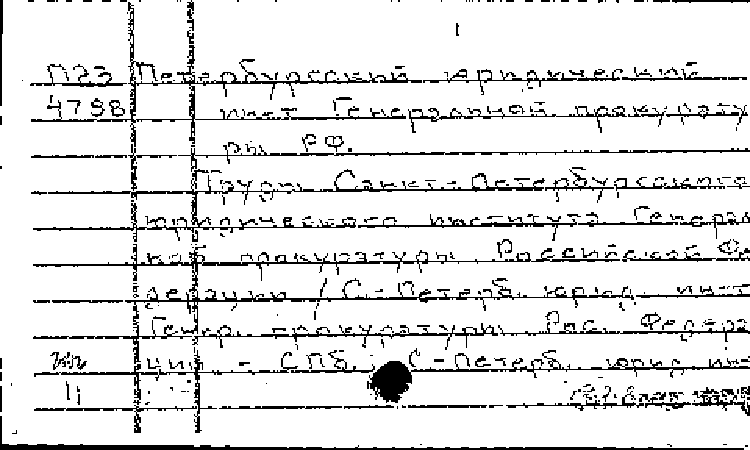 1
П23 Петербургский юридический
4798 инст. Генеральной прокурату
ры РФ.
Труды Санкт-Петербургского
юридического института Генераль
ной прокуратуры Российской Фе
дерации / С.-Петерб. юрид. инст.
Генер. прокуратуры Рос. Федера
ции. - СПб.: С.-Петерб. юрид. ин